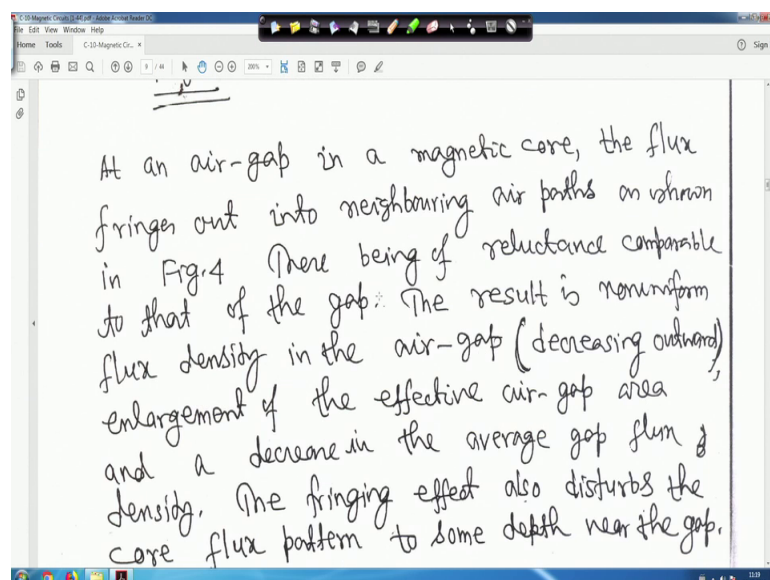 C-10-Magnetic Circuits (1-44).pdf - Adobe Acrobat Reader DC
File Edit View Window Help
Home Tools C-10-Magnetic Cir... × Sign
8 / 44 200%
At an air-gap in a magnetic core, the flux
fringes out into neighbouring air paths as shown
in Fig.4 There being of reluctance comparable
to that of the gap. The result is nonuniform
flux density in the air-gap (decreasing outward),
enlargement of the effective air-gap area
and a decrease in the average gap flux
density. The fringing effect also disturbs the
core flux pattern to some depth near the gap.
11:19